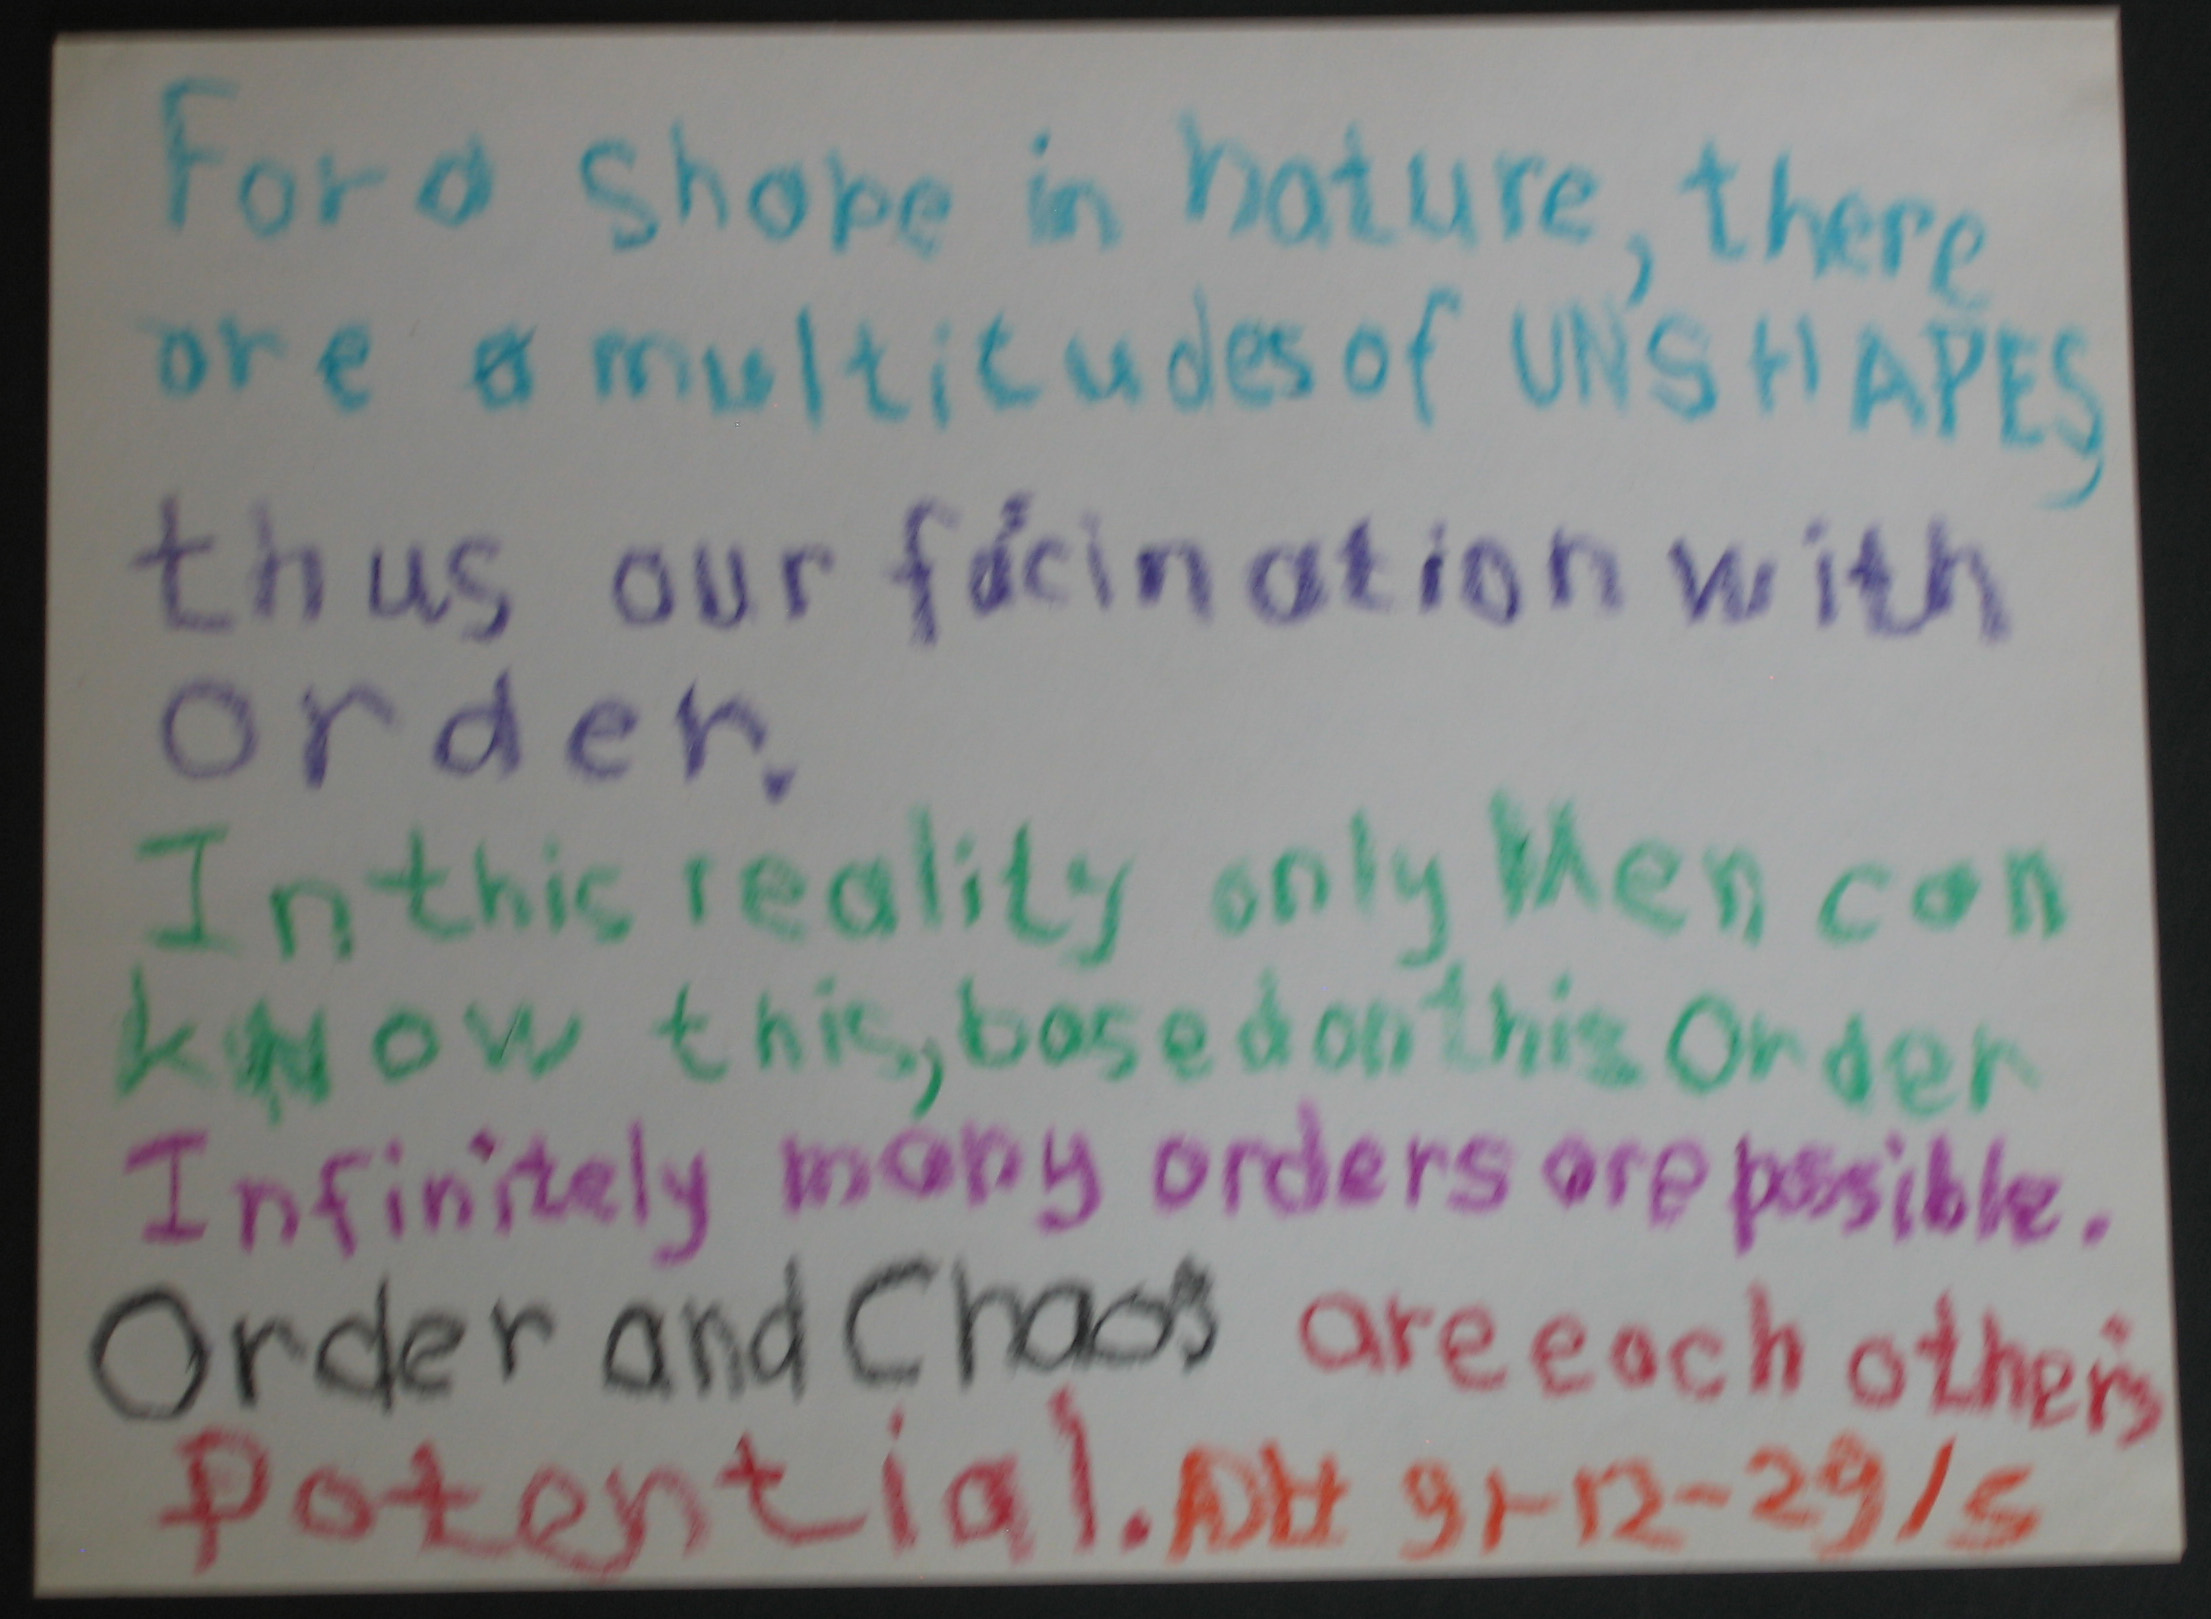 For a shape in nature, there
are a multitudes of UNSHAPES,
thus our facination with
order.
In this reality only Men can
know this, based on this Order
Infinitely many orders are possible.
Order and Chaos are each other's
Potential. 91-12-29/5